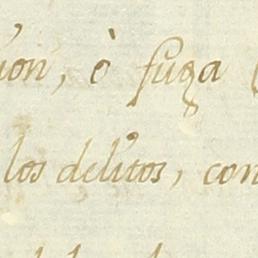 ion, ò fuga
los delitos, con